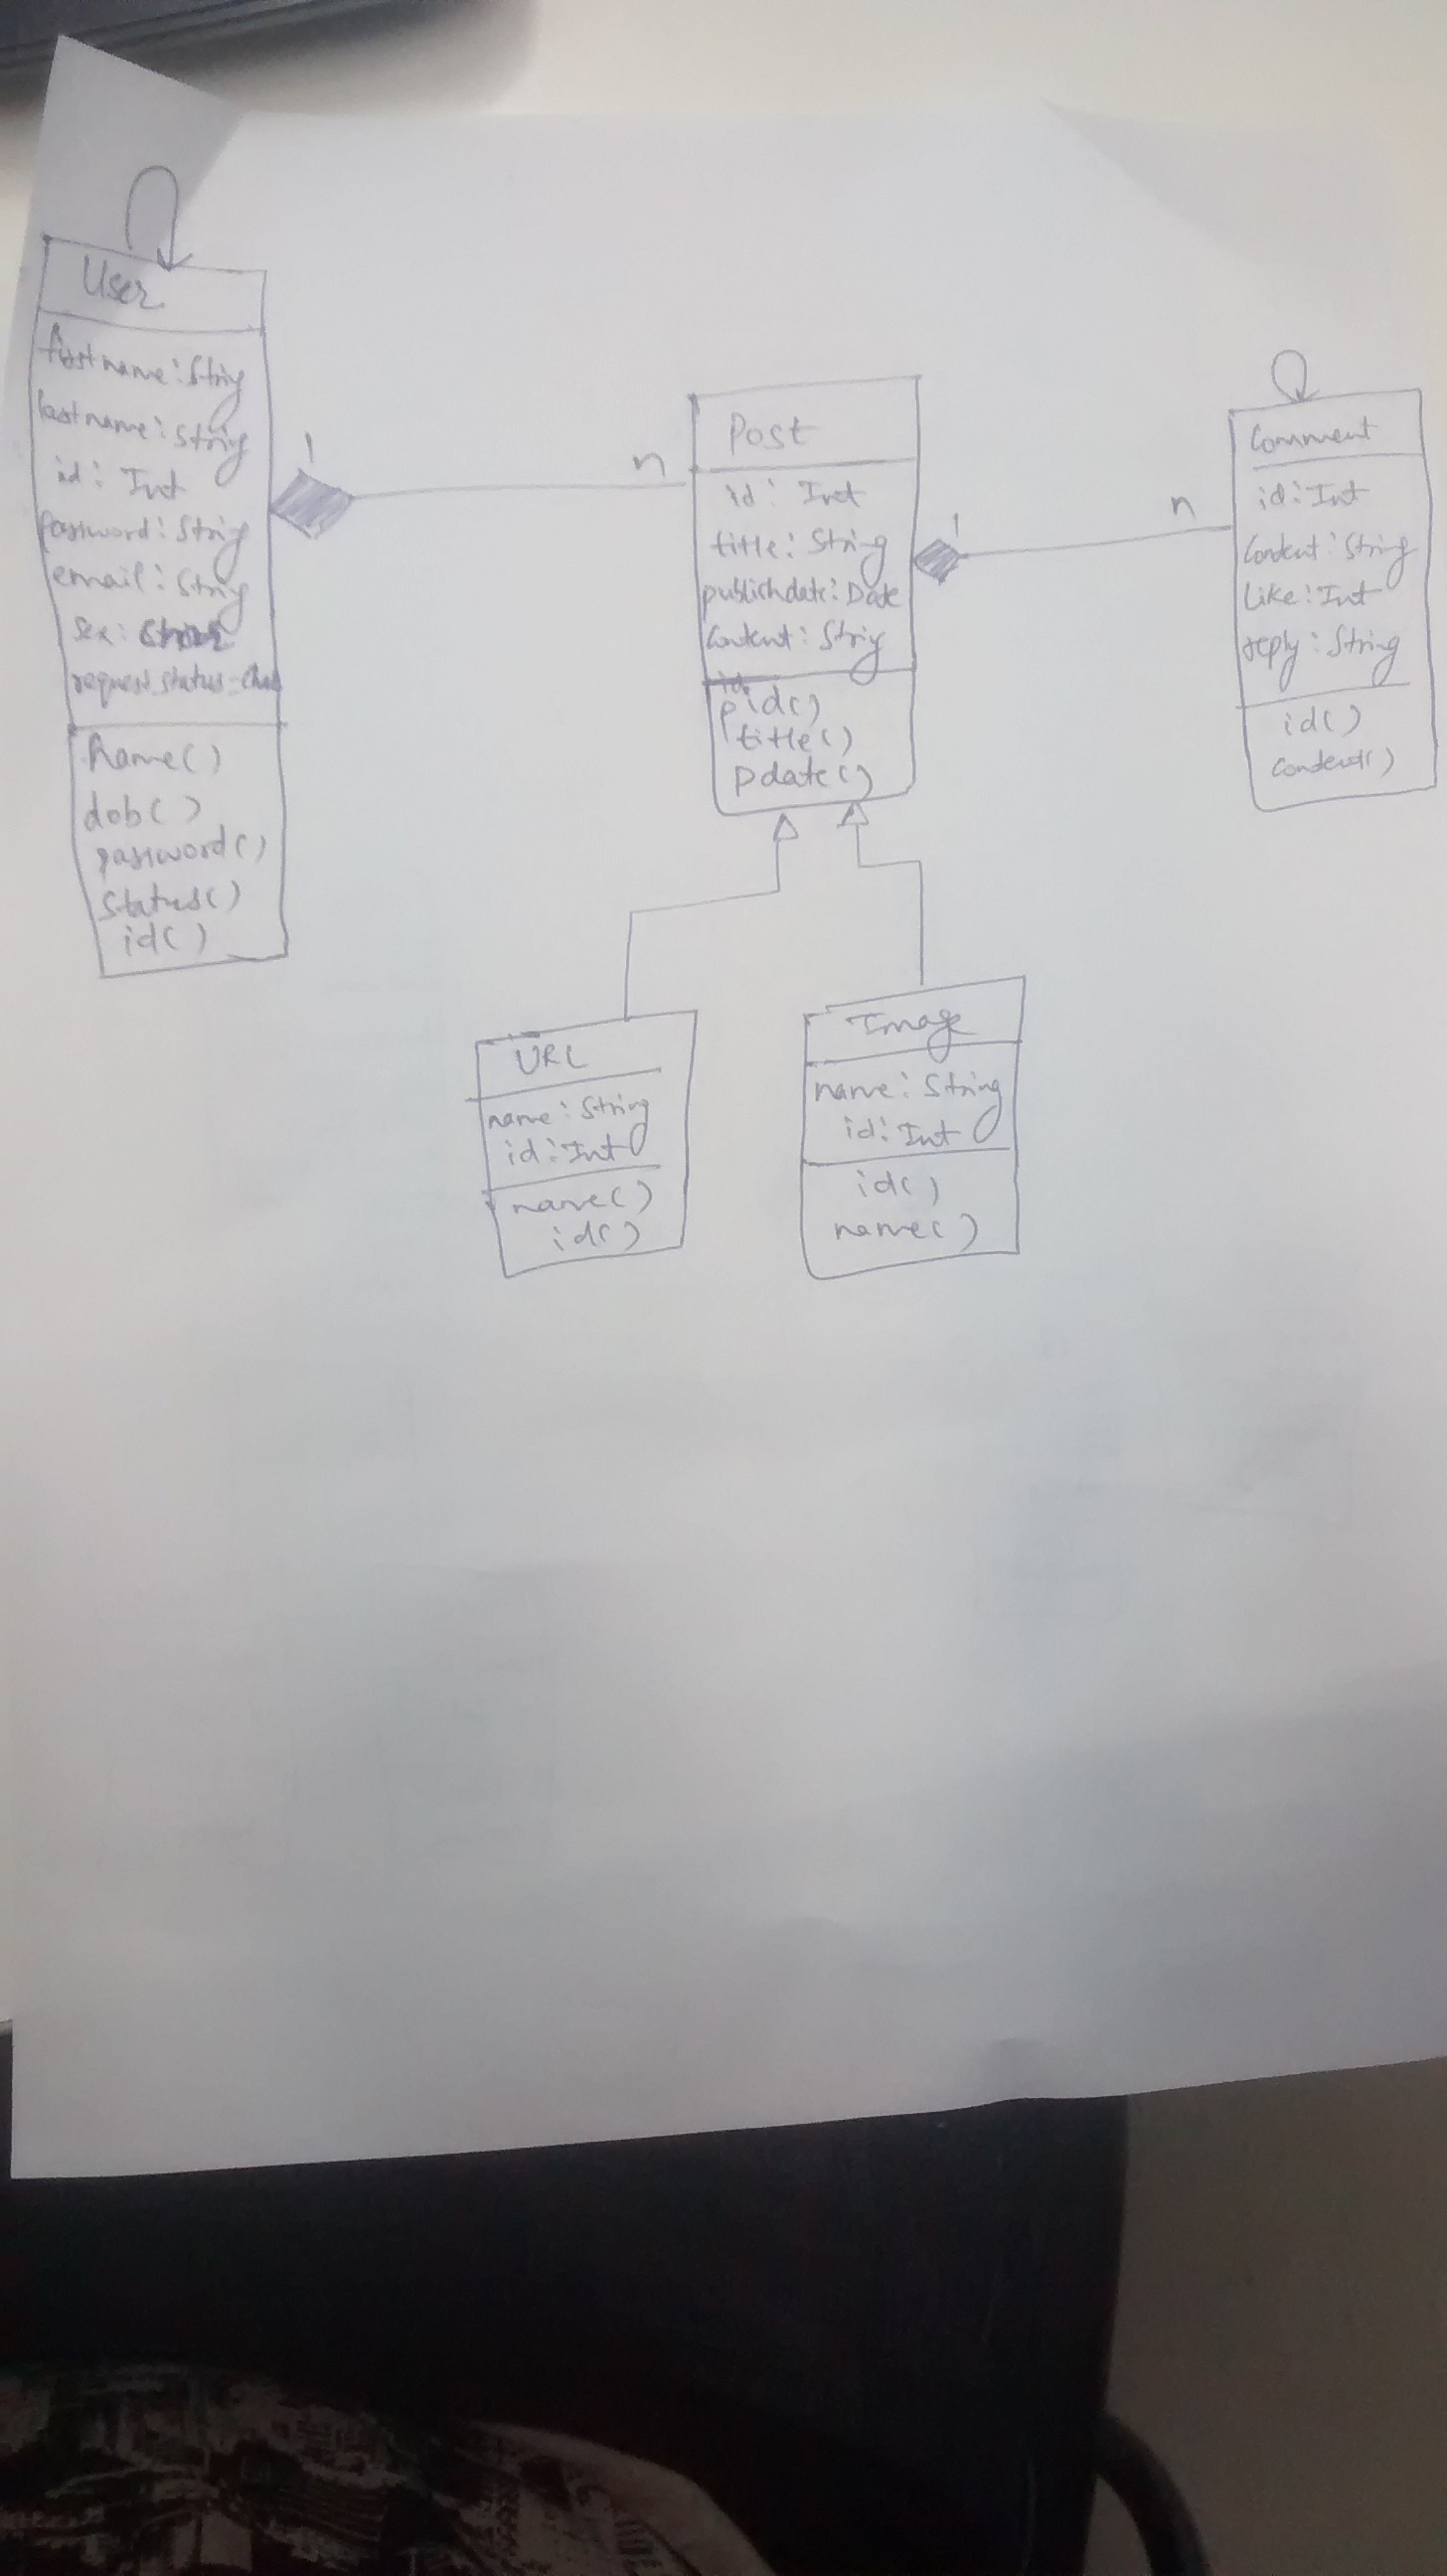 User
firstname: String
lastname: String
id: Int
password: String
email: String
sex:
request status - Char
name()
dob()
password()
status()
id()
1
n
Post
id: Int
title: String
publishdate: Date
Content: String
pid()
title()
Pdate()
1
n
Comment
id: Int
Content: String
Like: Int
reply: String
id()
Content()
URL
name: String
id: Int
name()
id()
Image
name: String
id: Int
id()
name()